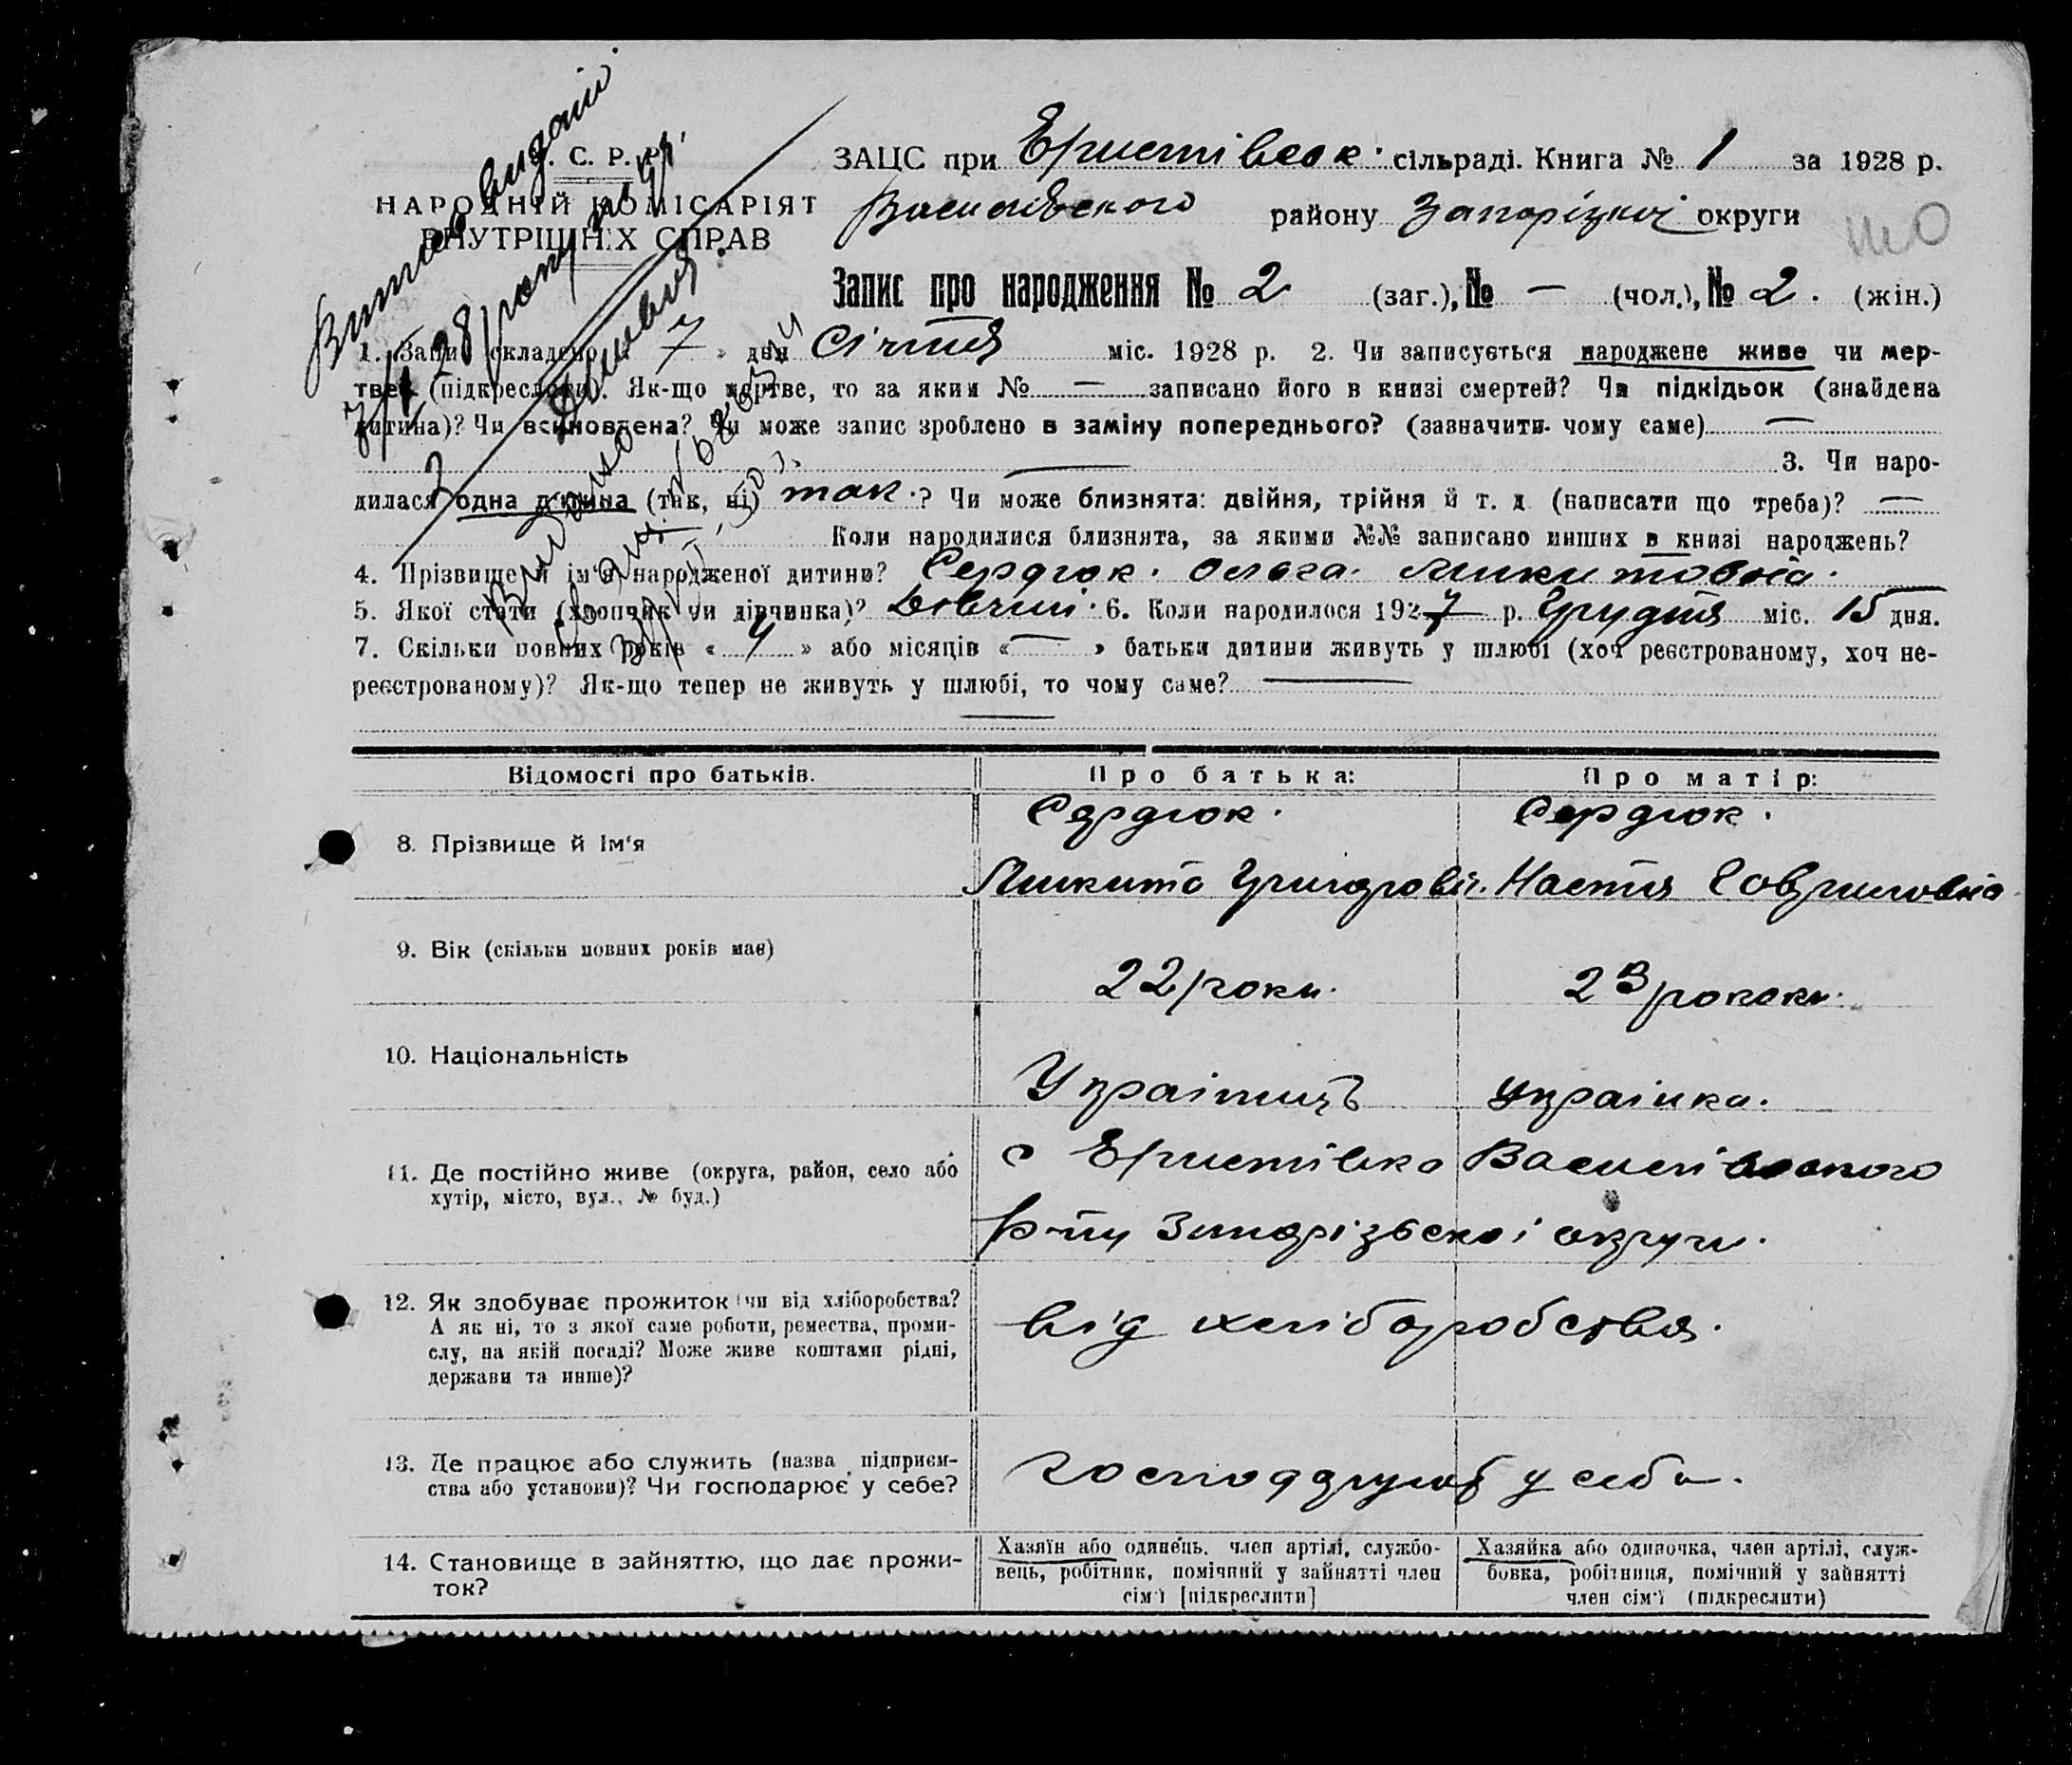 С. Р. Р.
НАРОДНІЙ КОМІСАРІЯТ
ВНУТРІШНІХ СПРАВ
ЗАЦС при Еристівськ. сільраді. Книга № 1 за 1928 р.
Василівського району Запорізької округи
Запис про народження № 2 (заг.), № — (чол.), № 2. (жін.)
1. Запис складено « 7 » дня Січня міс. 1928 р. 2. Чи записується народжене живе чи мер-
тве (підкреслити). Як-що мертве, то за яким № — записано його в книзі смертей? Чи підкідьок (знайдена
дитина)? Чи всиновлена? Чи може запис зроблено в заміну попереднього? (зазначити чому саме) —
— 3. Чи наро-
дилася одна дитина (так, ні) так.? Чи може близнята: двійня, трійня й т. д. (написати що треба)? —
Коли народилися близнята, за якими №№ записано инших в книзі народжень? —
4. Прізвище й ім'я народженої дитини? Сердюк. Ольга. Микитовна.
5. Якої стати (хлопчик чи дівчинка)? Дівчин. 6. Коли народилося 1927 р. Грудня міс. 15 дня.
7. Скільки повних років « 4 » або місяців « — » батьки дитини живуть у шлюбі (хоч реєстрованому, хоч не-
реєстрованому)? Як-що тепер не живуть у шлюбі, то чому саме? —
—
Витяг видано
7/1 28 року
Видано
Відомості про батьків. Про батька: Про матір:
8. Прізвище й ім'я
Сердюк. Сердюк.
Микита Григорович. Настя
9. Вік (скільки повних років має)
22 роки. 23 рококи.
10. Національність
Українць українка.
11. Де постійно живе (округа, район, село або
хутір, місто, вул., № буд.)
с Еристівка Василівського
р-ну Запорізської округи.
12. Як здобуває прожиток чи від хліборобства?
А як ні, то з якої саме роботи, ремества, проми-
слу, на якій посаді? Може живе коштами рідні,
держави та инше)?
від хліборобства.
13. Де працює або служить (назва підприєм-
ства або установи)? Чи господарює у себе?
господарують у себе.
14. Становище в зайняттю, що дає прожи-
ток?
Хазяїн або одинець, член артілі, службо-
вець, робітник, помічний у зайнятті член
сім'ї [підкреслити]
Хазяйка або одиночка, член артілі, служ-
бовка, робітниця, помічний у зайнятті
член сім'ї (підкреслити)